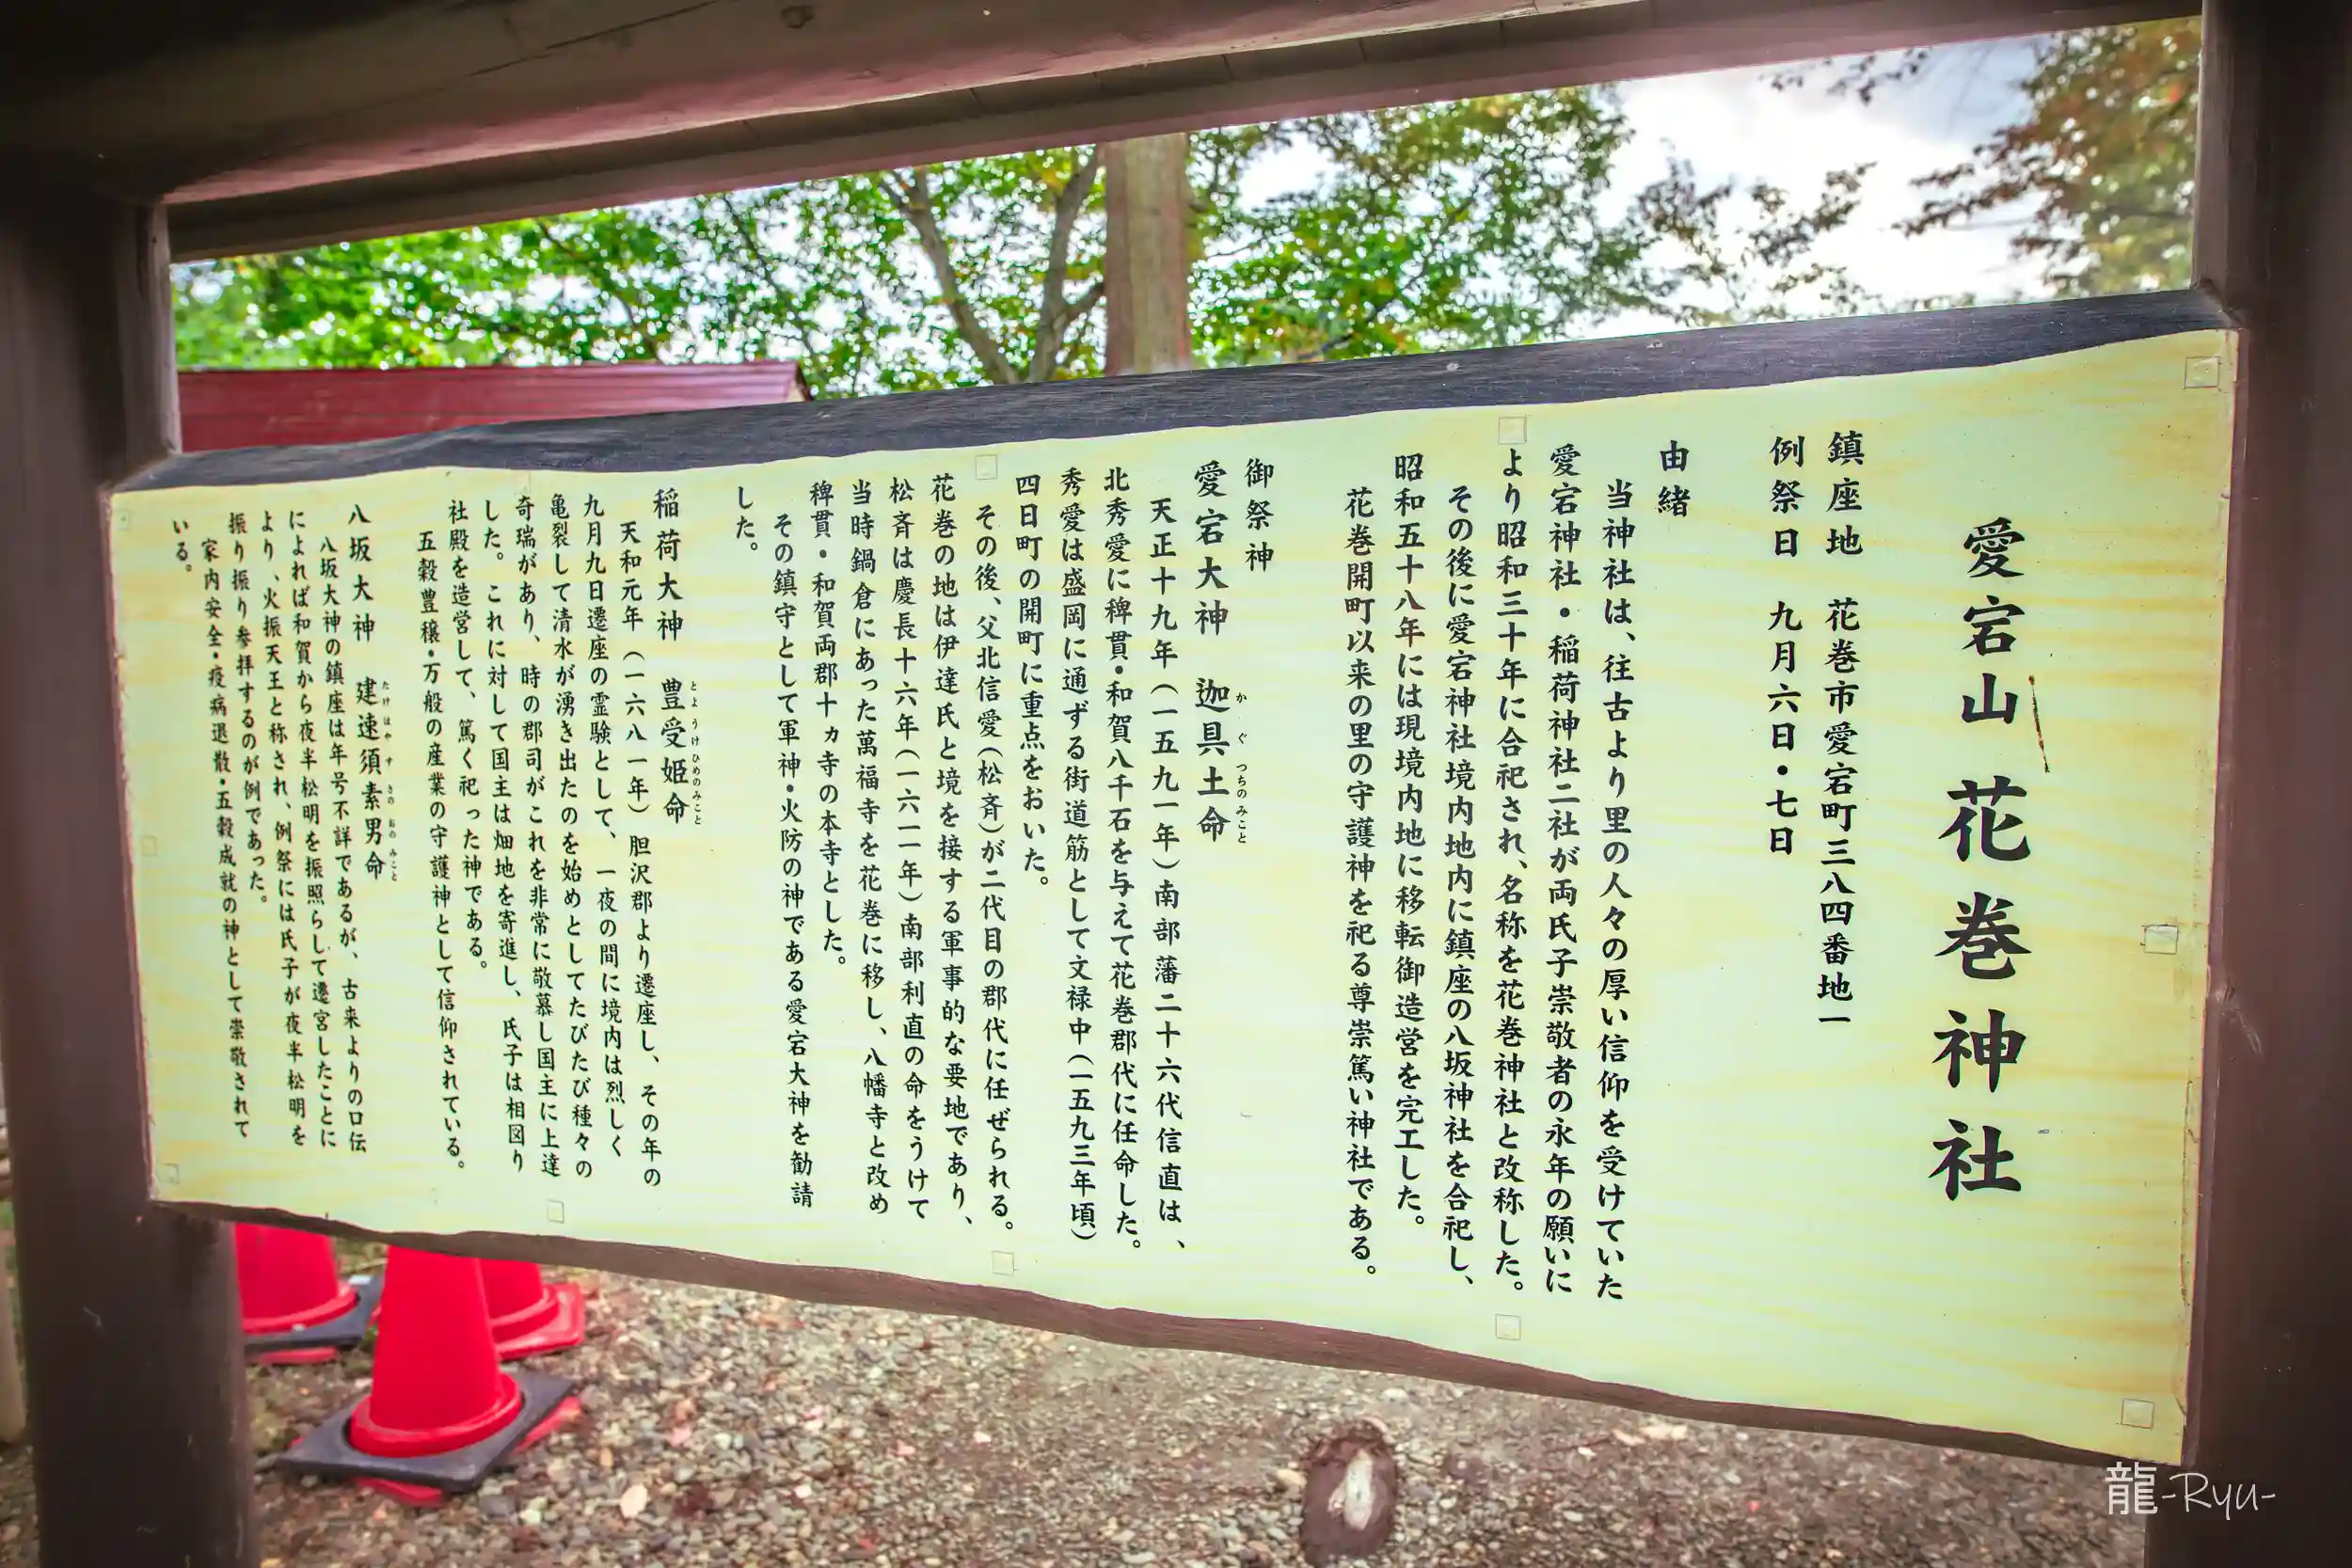 愛宕山 花巻神社
鎮座地 花巻市愛宕町三八四番地一
例祭日 九月六日・七日
由緒
当神社は、往古より里の人々の厚い信仰を受けていた
愛宕神社・稲荷神社二社が両氏子崇敬者の永年の願いに
より昭和三十年に合祀され、名称を花巻神社と改称した。
その後に愛宕神社境内地内に鎮座の八坂神社を合祀し、
昭和五十八年には現境内地に移転御造営を完工した。
花巻開町以来の里の守護神を祀る尊崇篤い神社である。
御祭神
愛宕大神 迦具土命
か ぐ つちの みこと
天正十九年（一五九一年）南部藩二十六代信直は、
北秀愛に稗貫・和賀八千石を与えて花巻郡代に任命した。
秀愛は盛岡に通ずる街道筋として文禄中（一五九三年頃）
四日町の開町に重点をおいた。
その後、父北信愛（松斉）が二代目の郡代に任ぜられる。
花巻の地は伊達氏と境を接する軍事的な要地であり、
松斉は慶長十六年（一六一一年）南部利直の命をうけて
当時鍋倉にあった萬福寺を花巻に移し、八幡寺と改め
稗貫・和賀両郡十ヵ寺の本寺とした。
その鎮守として軍神・火防の神である愛宕大神を勧請
した。
稲荷大神 豊受姫命
とようけひめのみこと
天和元年（一六八一年）胆沢郡より遷座し、その年の
九月九日遷座の霊験として、一夜の間に境内は烈しく
亀裂して清水が湧き出たのを始めとしてたびたび種々の
奇瑞があり、時の郡司がこれを非常に敬慕し国主に上達
した。これに対して国主は畑地を寄進し、氏子は相図り
社殿を造営して、篤く祀った神である。
五穀豊穣・万般の産業の守護神として信仰されている。
八坂大神 建速須素男命
たけはや す さの おの みこと
八坂大神の鎮座は年号不詳であるが、古来よりの口伝
によれば和賀から夜半松明を振照らして遷宮したことに
より、火振天王と称され、例祭には氏子が夜半松明を
振り振り参拝するのが例であった。
家内安全・疫病退散・五穀成就の神として崇敬されて
いる。
龍-Ryu-